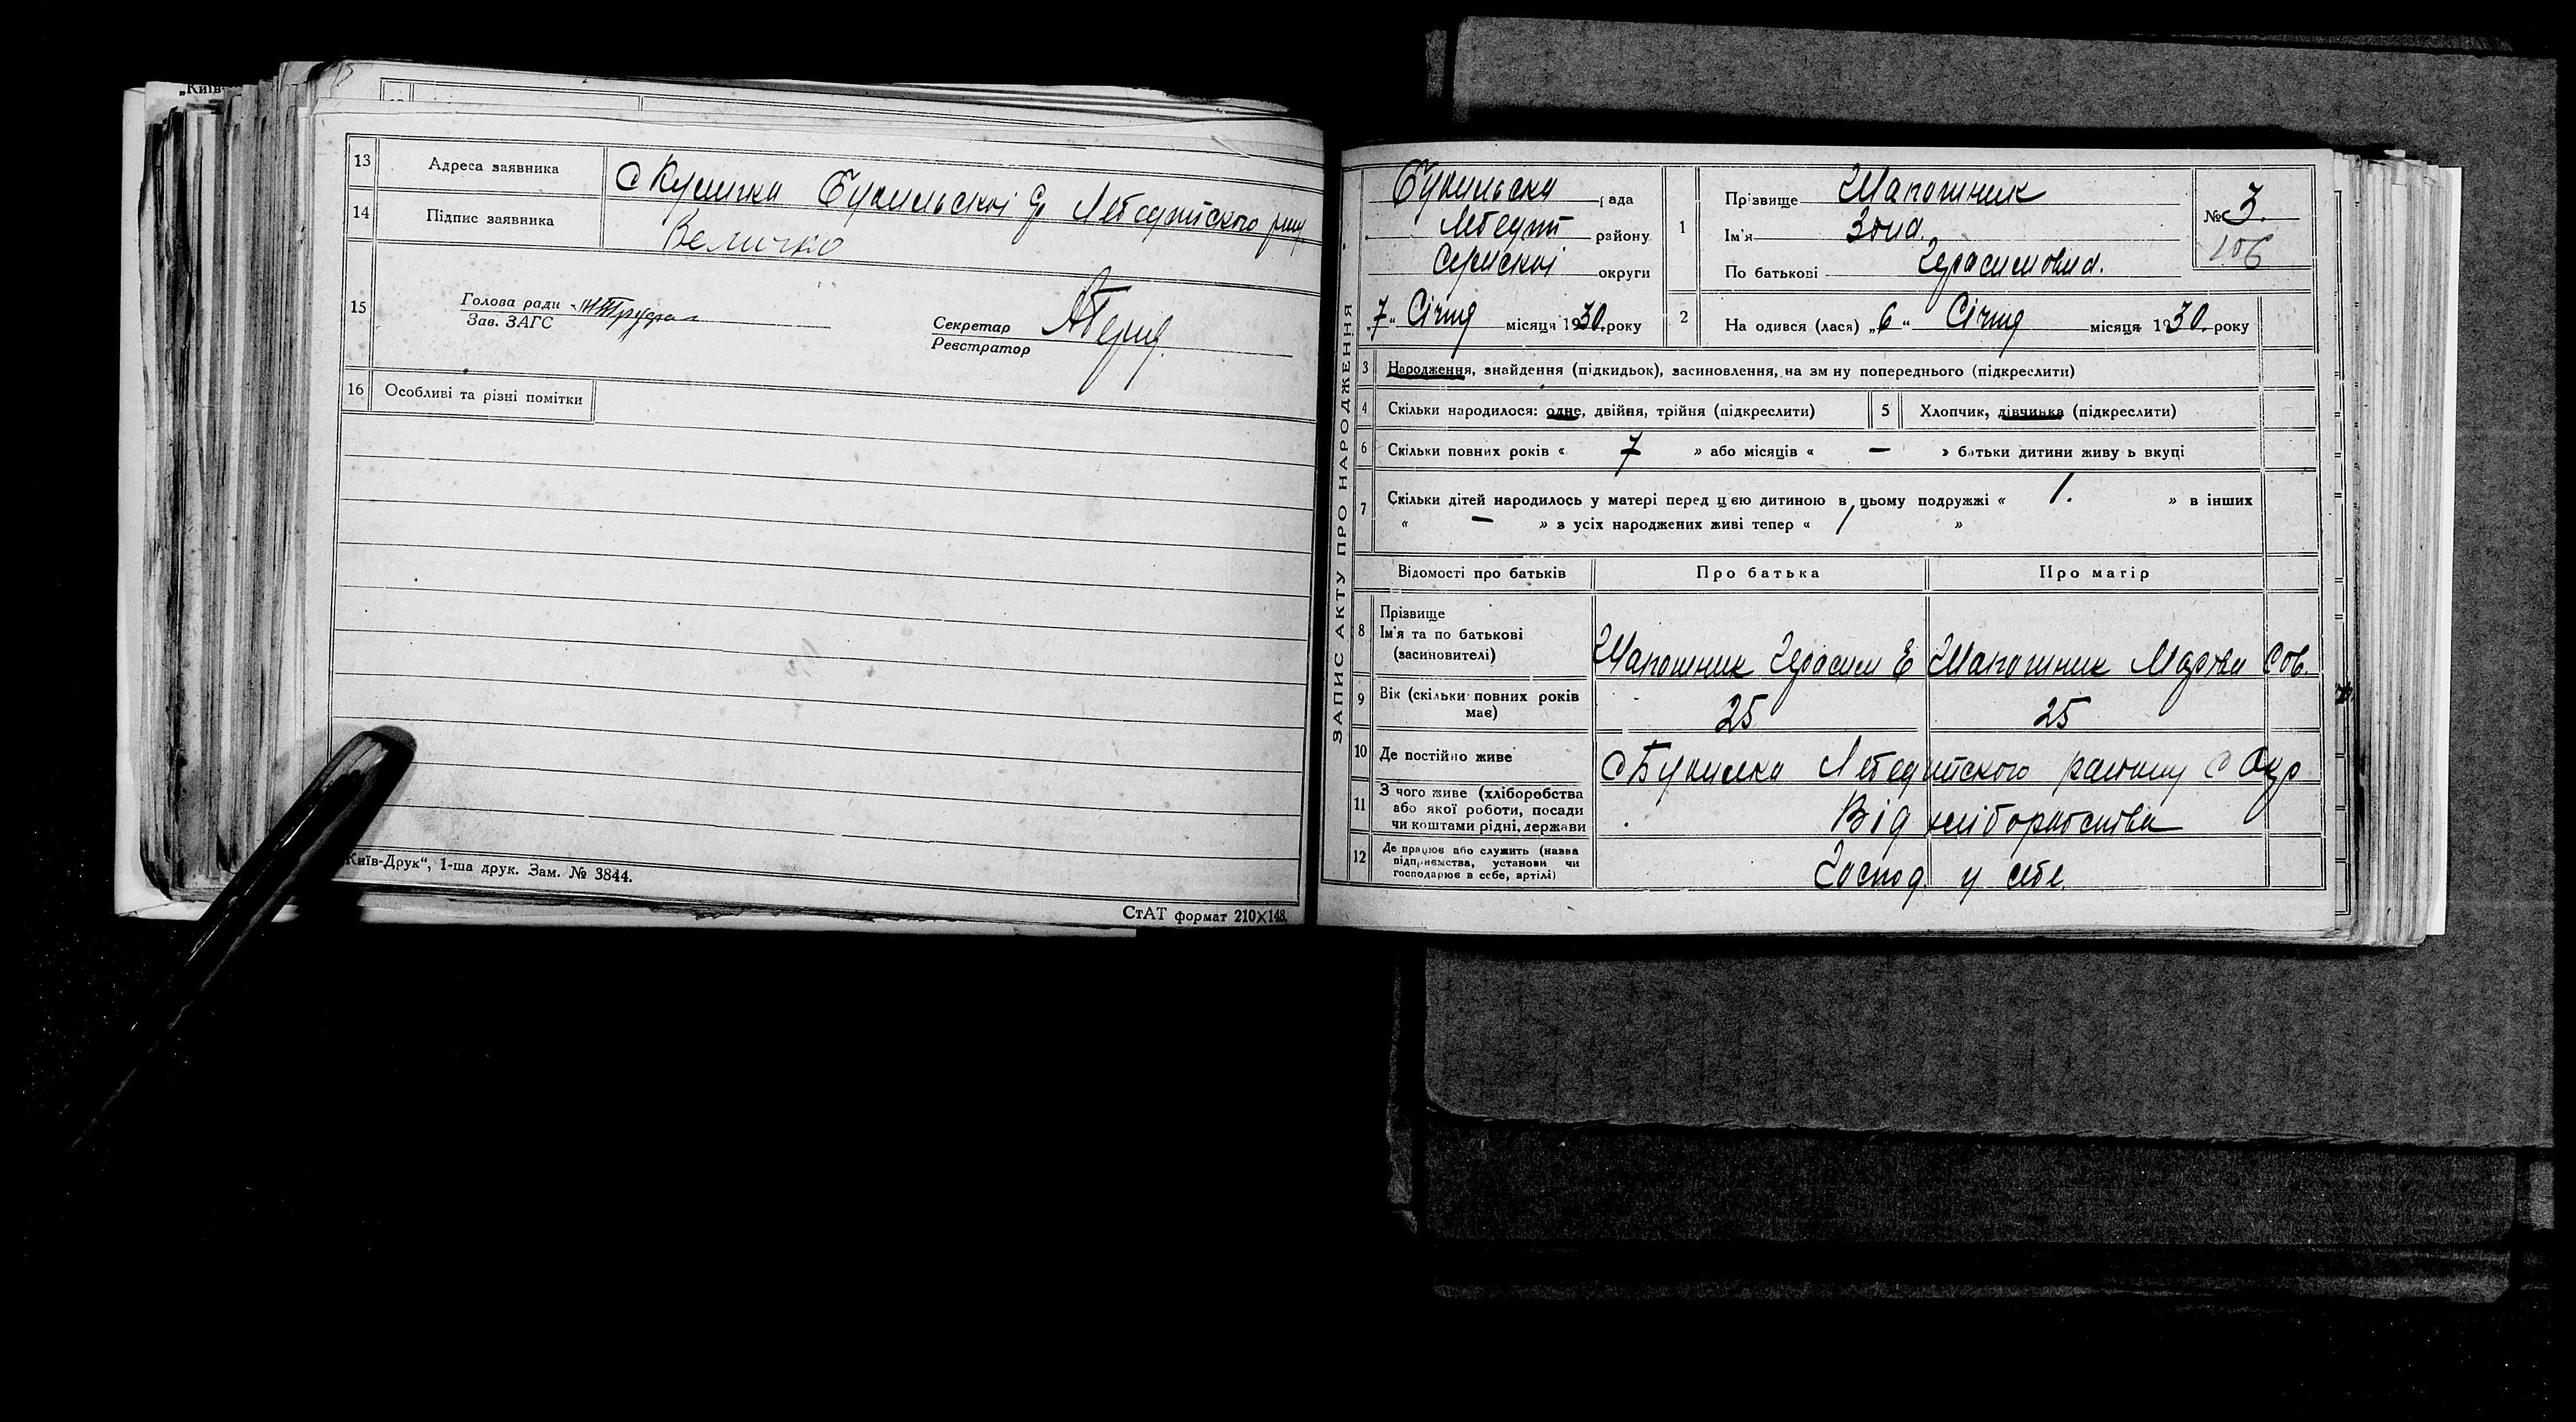 „Київ-
13 Адреса заявника С Куличка Букильської С/р Лебединського рну
14 Підпис заявника Величко
15 Голова ради
Зав. ЗАГС
Секретар
Реєстратор
16 Особливі та різні помітки
Київ-Друк“, 1-ша друк. Зам. № 3844.
СтАТ формат 210×148.
ЗАПИС АКТУ ПРО НАРОДЖЕННЯ
Букильска рада
Лебедин району
Сумської округи
„7“ Січня місяця 1930 року
1 Прізвище Шапошник
Ім'я Зоиа
По батькові Герасимовна.
№ 3.
106
2 На одився (лася) „6“ Січня місяця 1930. року
3 Народження, знайдення (підкидьок), засиновлення, на зм ну попереднього (підкреслити)
4 Скільки народилося: одне, двійня, трійня (підкреслити) 5 Хлопчик, дівчинка (підкреслити)
6 Скільки повних років « 7 » або місяців « — » батьки дитини живу ь вкупі
7 Скільки дітей народилось у матері перед цією дитиною в цьому подружжі « 1. » в інших
« — » з усіх народжених живі тепер « 1 »
Відомості про батьків Про батька Про матір
8 Прізвище
Ім'я та по батькові
(засиновителі)
Шапошник Герасим Є Шапошник Марфа Сов.
9 Вік (скільки повних років
має)
25 25
10 Де постійно живе С Букилка Лебединського району С Окр
11 З чого живе (хліборобства
або якої роботи, посади
чи коштами рідні, держави
Від хліборобства
12 Де працює або служить (назва
підприємства, установи чи
господарює в себе, артілі)
Господ у себе